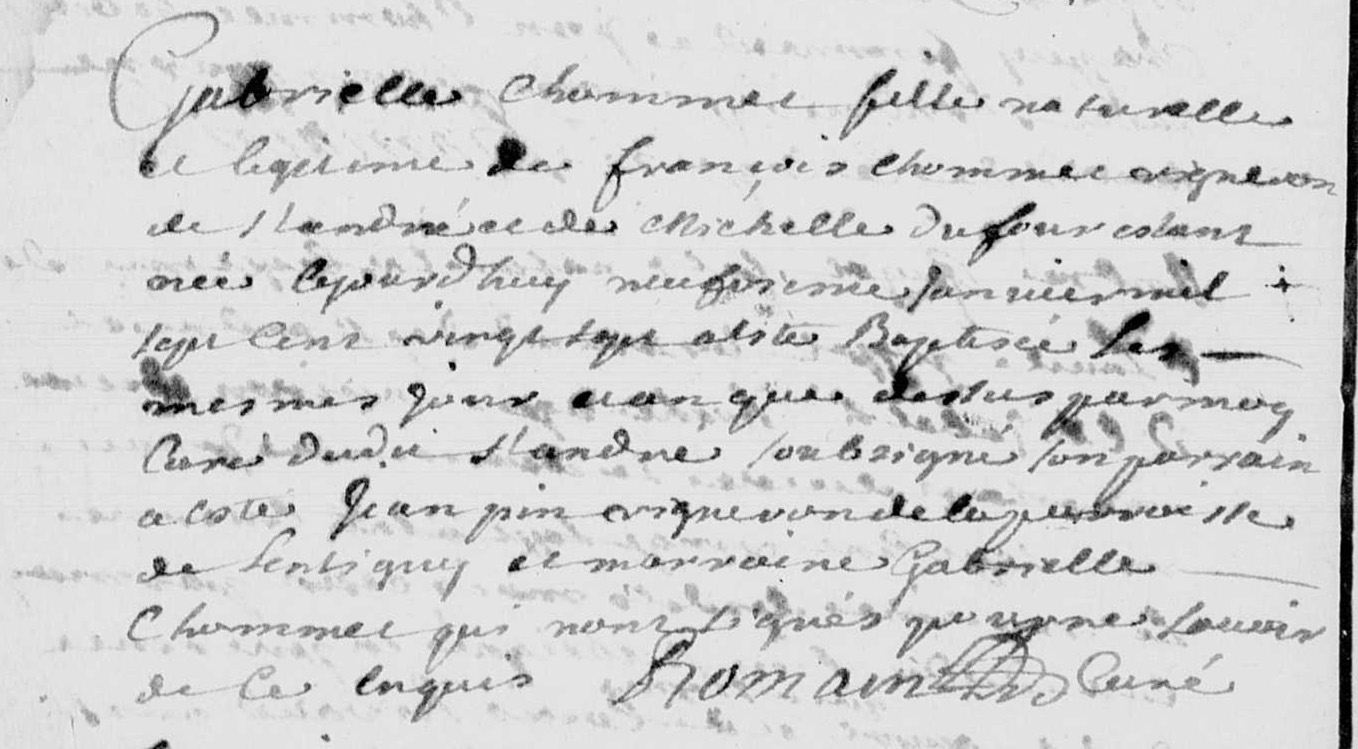 Gabrielle Chommet fille naturelle
et legitime de françois Chommet vigneron
de st andré et de Michelle Dufour estant
née cejourdhuy neufvieme Janvier mil
sept cent vingt sept a esté Baptisée les
mesmes jour et an que dessus par moy
Curé dudit st andré soubsigné son parrain
a esté Jean pin vigneron de la parroisse
de Lentigny et marraine Gabrielle
Chommet qui nont signés pour ne scavoir
de ce enquis Romain Curé